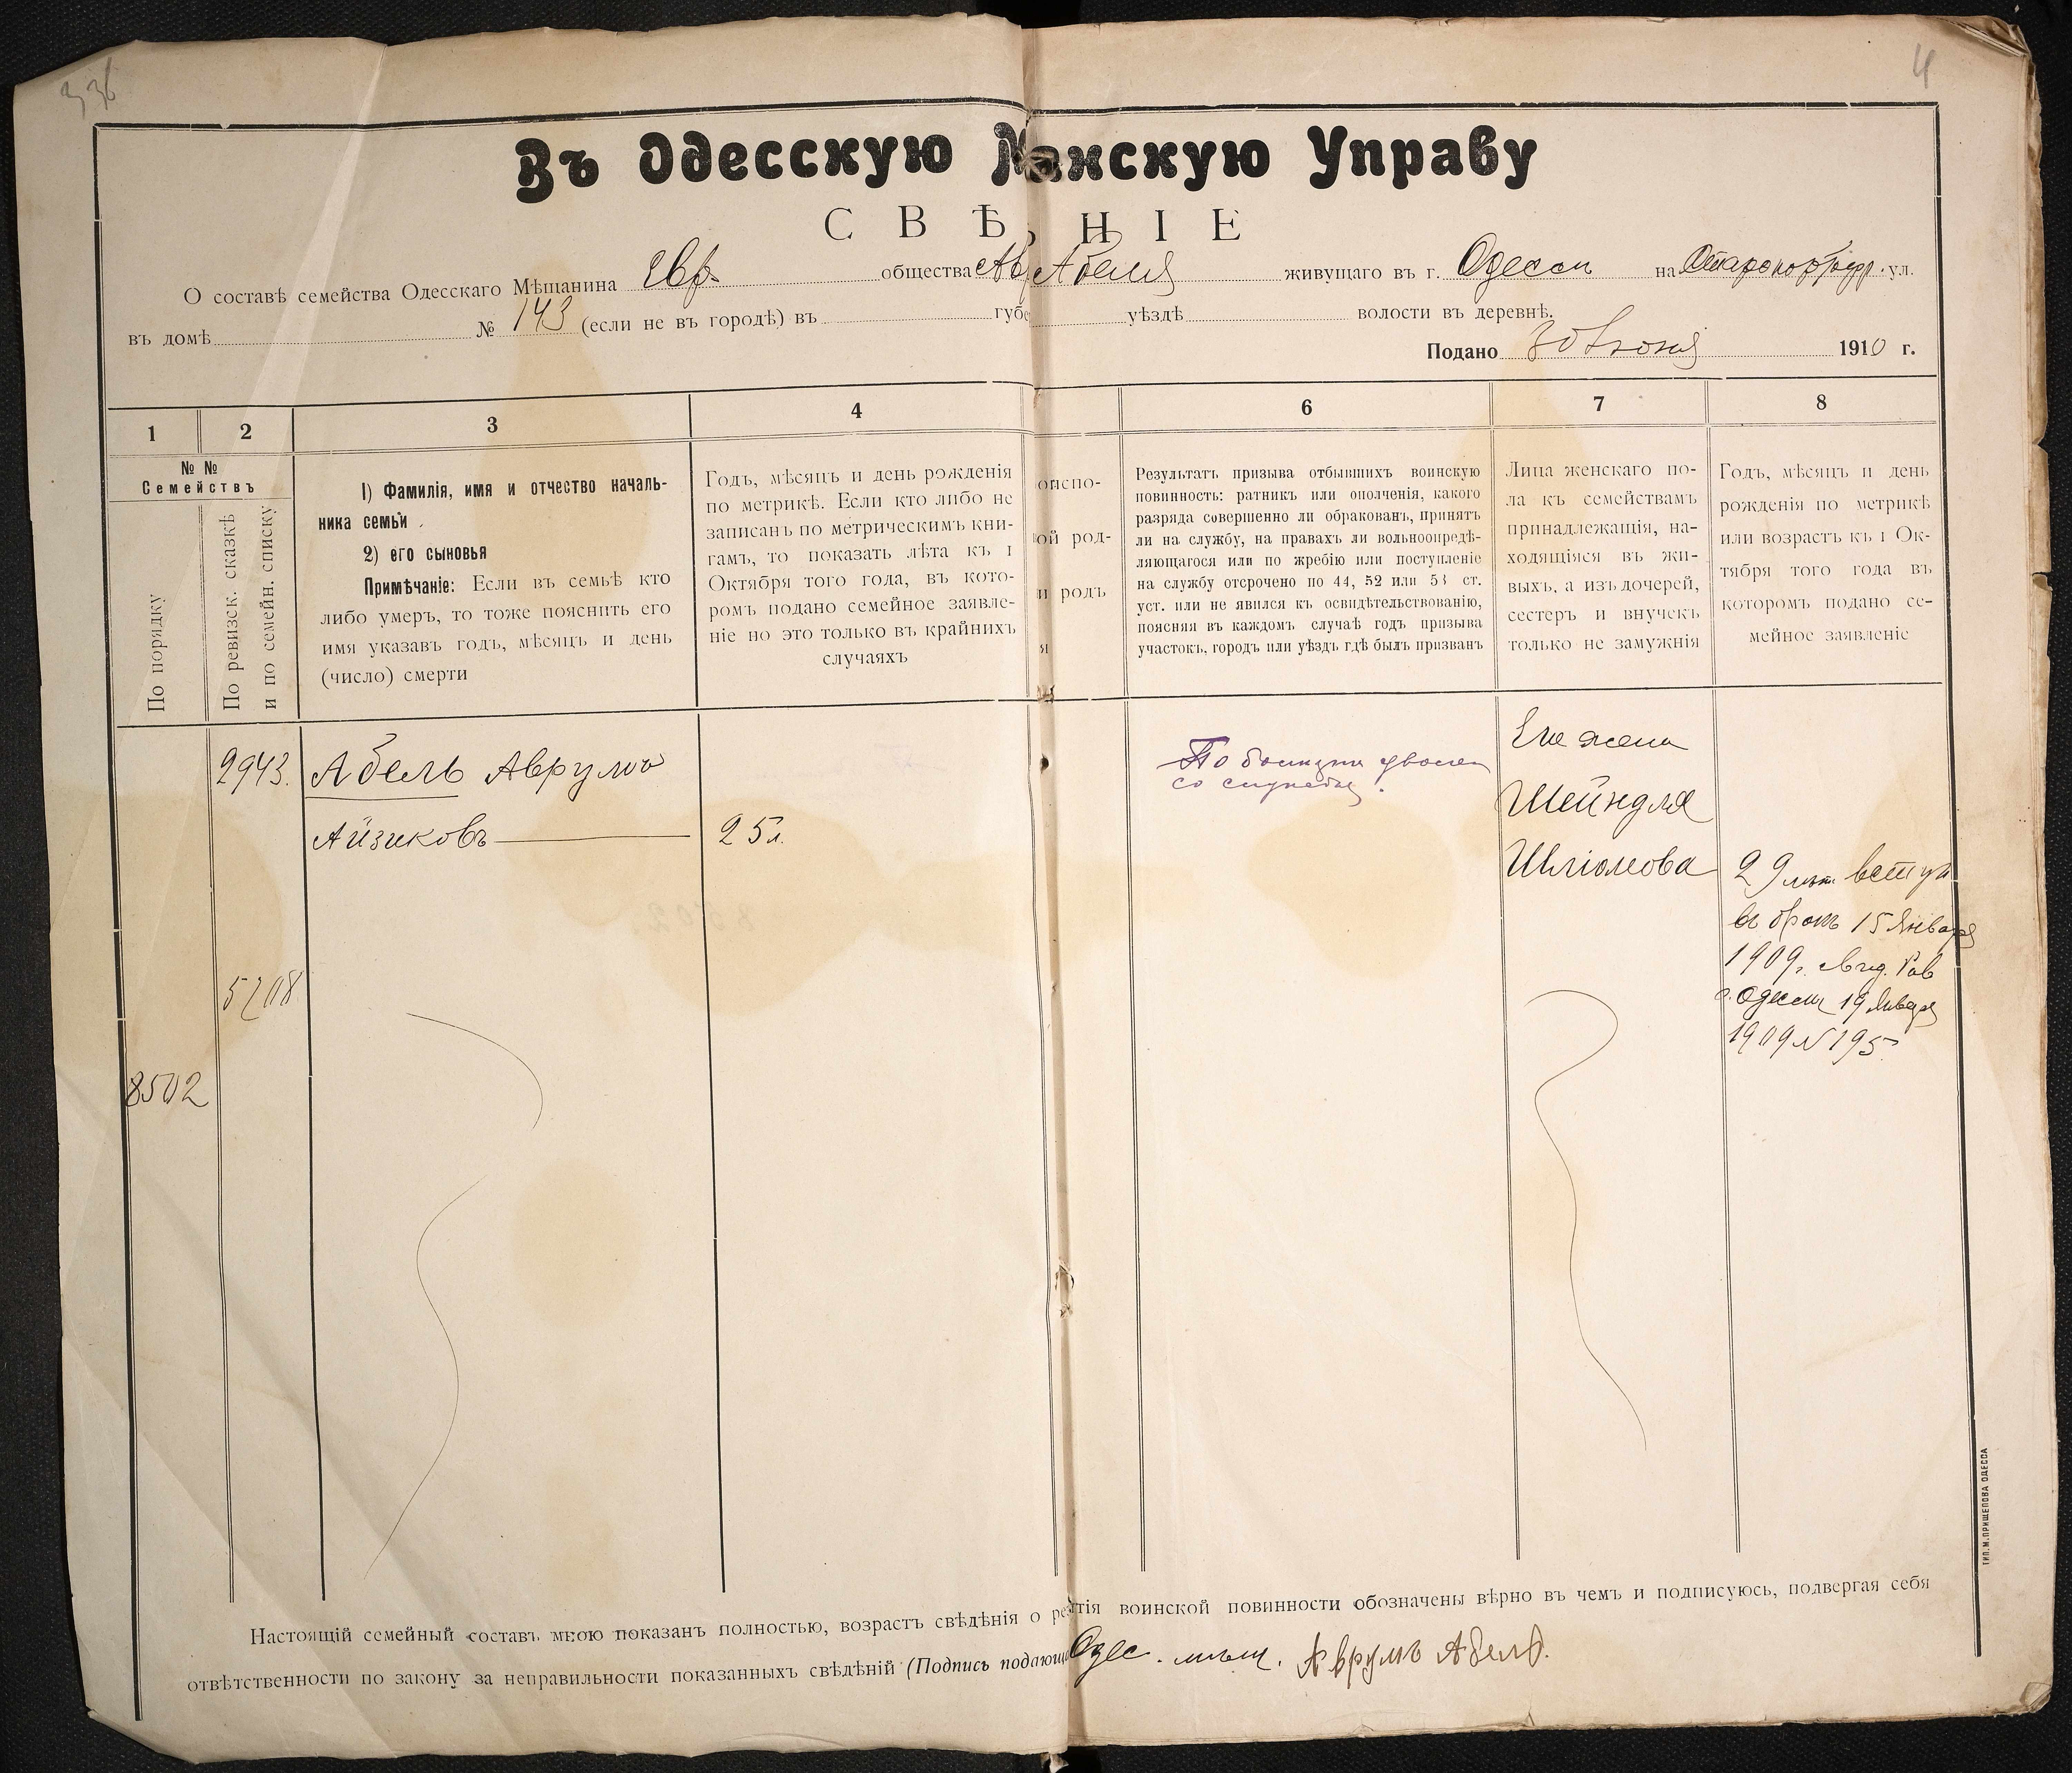 336
4
Въ Одесскую М нскую Управу
СВѢ НІЕ
О составѣ семейства Одесскаго Мѣщанина Евр. общества Ав Абеля живущаго въ г. Одессы на Старопортофр. ул.
въ домѣ № 143 (если не въ городѣ) въ губе уѣздѣ волости въ деревнѣ.
Подано 30 Іюня 1910 г.
1 2 3 4 6 7 8
№ №
Семействъ
По порядку
По ревизск. сказкѣ
и по семейн. списку
1) Фамилія, имя и отчество началь-
ника семьи
2) его сыновья
Примѣчаніе: Если въ семьѣ кто
либо умеръ, то тоже пояснить его
имя указавъ годъ, мѣсяцъ и день
(число) смерти
Годъ, мѣсяцъ и день рожденія
по метрикѣ. Если кто либо не
записанъ по метрическимъ кни-
гамъ, то показать лѣта къ 1
Октября того года, въ кото-
ромъ подано семейное заявле-
ніе но это только въ крайнихъ
случаяхъ
испо-
ой род-
и родъ
я
Результатъ призыва отбывшихъ воинскую
повинность: ратникъ или ополченія, какого
разряда совершенно ли обракованъ, принятъ
ли на службу, на правахъ ли вольноопредѣ-
ляющагося или по жребію или поступленіе
на службу отсрочено по 44, 52 или 53 ст.
уст. или не явился къ освидѣтельствованію,
поясняя въ каждомъ случаѣ годъ призыва
участокъ, городъ или уѣздъ гдѣ былъ призванъ
Лица женскаго по-
ла къ семействамъ
принадлежащія, на-
ходящіяся въ жи-
выхъ, а изъ дочерей,
сестеръ и внучекъ
только не замужнія
Годъ, мѣсяцъ и день
рожденія по метрикѣ
или возрастъ къ 1 Ок-
тября того года въ
которомъ подано се-
мейное заявленіе
2943. Абель Аврумъ
Айзиковъ 25 л.
5708
8502
По болезни уволен
со службы.
Его жена
Шейндля
Шліомова
29 лѣт вступ
въ бракъ 15 Января
1909 г. Свид. Рав
г. Одессы 19 Января
1909 N 195
Настоящій семейный составъ мною показанъ полностью, возрастъ свѣдѣнія о ре тія воинской повинности обозначены вѣрно въ чемъ и подписуюсь, подвергая себя
отвѣтственности по закону за неправильности показанныхъ свѣдѣній (Подпись подающ Одес. мѣщ. Аврумъ Абель.
ТИП. М. ПРИЩЕПОВА ОДЕССА